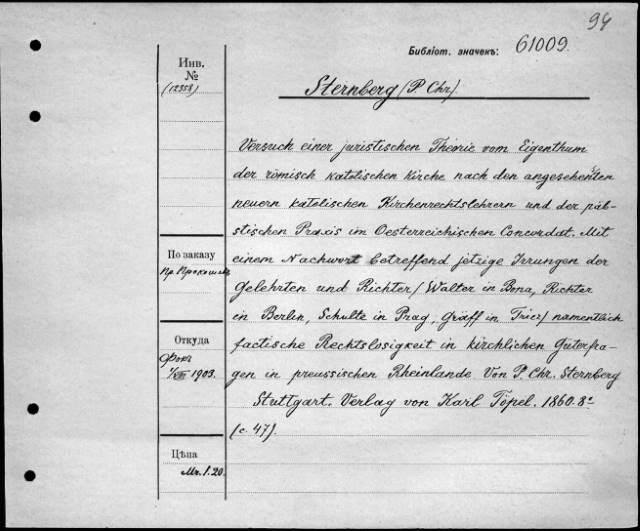 94
Библіот. значекъ: 61009
Инв.
№
(12358)
Sternberg (P. Chr.)
Versuch einer juristischen Theorie vom Eigenthum
der römisch katolischen Kirche nach den angesehensten
neuern katolischen Kirchenrechtslehrern und der päb-
stischen Praxis im Oesterreichischen Concordat. Mit
einem Nachwort betreffend jetzige Irrungen der
Gelehrten und Richter/Walter in Bona, Richter
in Berlin, Schulte in Prag, Gräff in Trier/ namentlich
factische Rechtslosigkeit in kirchlichen Güterfra-
gen in preussischen Rheinlande Von P. Chr. Sternberg
Stuttgart. Verlag von Karl Töpel. 1860. 8º
(c. 47).
По заказу
Пр.
Откуда
Фокъ
1/VIII 1903.
Цѣна
Mr. 1.20.